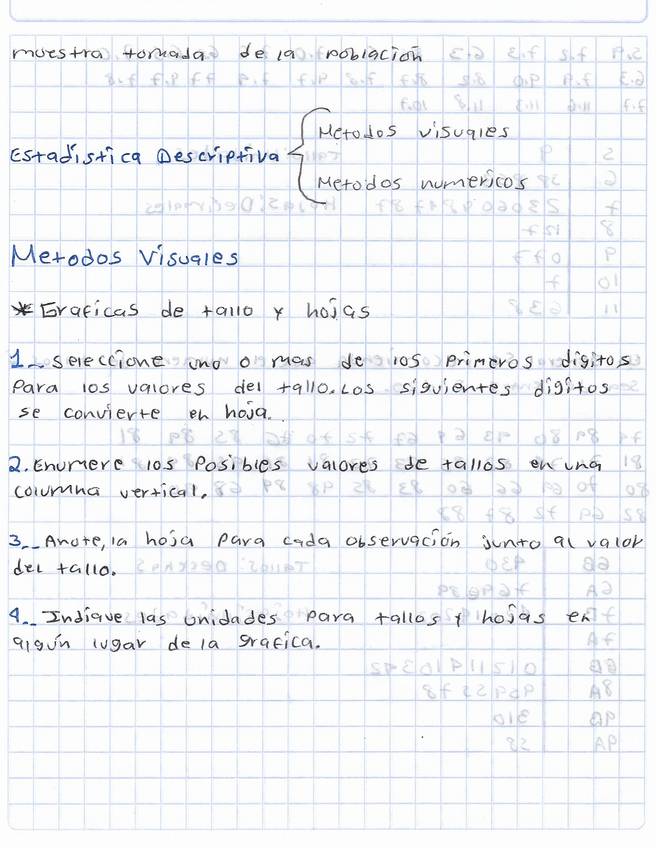 muestra tomada de la población
Estadística Descriptiva
Metodos visuales
Metodos numericos
Metodos Visuales
* Graficas de tallo y hojas
1.- Seleccione uno o mas de los primeros digitos
Para los valores del tallo. Los siguientes digitos
se convierte en hoja.
2. Enumere los Posibles valores de tallos en una
columna vertical.
3.- Anote, la hoja Para cada observación junto al valor
del tallo.
4.- Indique las unidades Para tallos y hojas en
algún lugar de la grafica.